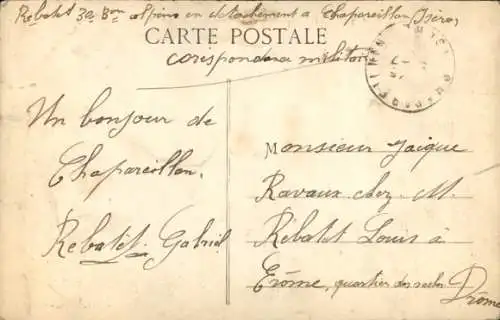 Rebatet 3a. Bon alpins en detachement a Chapareillan (Isère)
CARTE POSTALE
corespondance militaire
Un bonjour de
Chapareillan.
Rebatet Gabriel
Monsieur Jaïque
Ravaux chez M.
Rebatet Louis à
Erôme, quartier des
Drôme